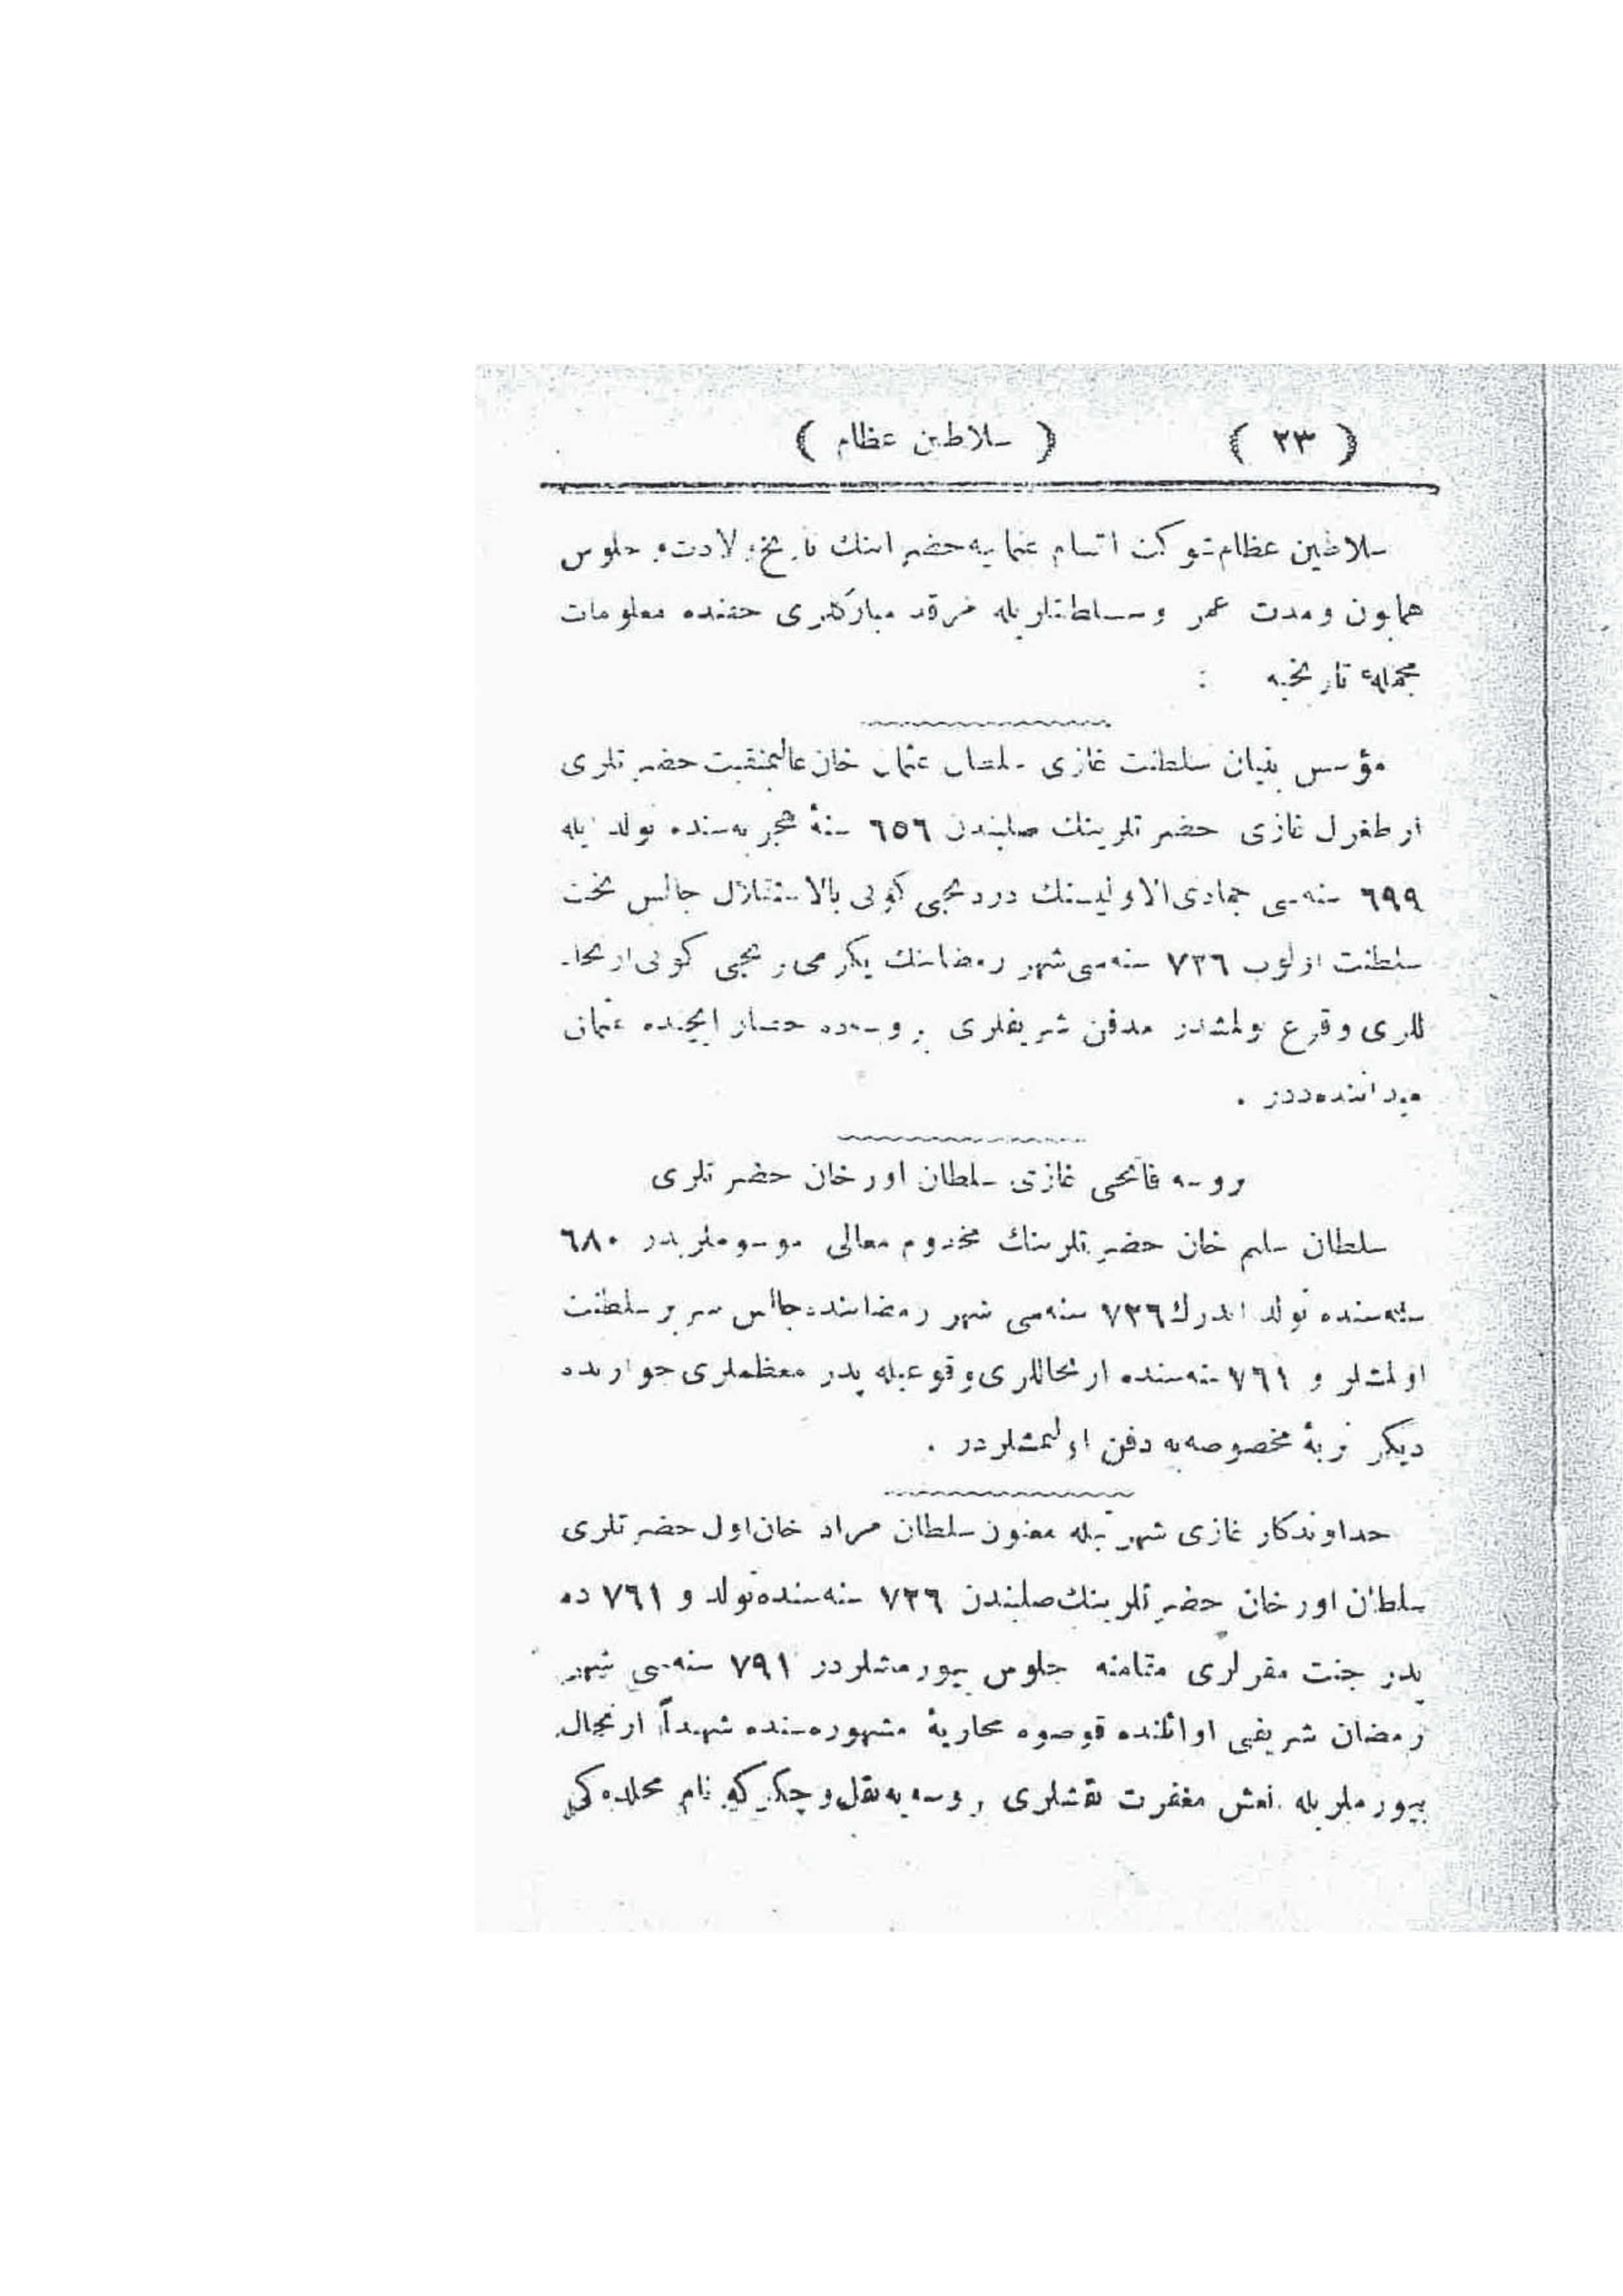 ( ٢٣ ) ( سلاطین عظام )
سلاطین عظام شوکت اتسام عثمانیه حضراتنك تاریخ ولادت و جلوس
همایون و مدت عمر و سلطنتلریله مرقد مبارکلری حقنده معلومات
مجملهٔ تاریخیه :
مؤسس بنیان سلطنت غازی سلطان عثمان خان عالیمنقبت حضرتلری
ارطغرل غازی حضرتلرینك صلبندن ٦٥٦ سنهٔ هجریه‌سنده تولد ایله
٦٩٩ سنه‌سی جمادی الاولیسنك دردنجی کونی بالاستقلال جالس تخت
سلطنت اولوب ٧٢٦ سنه‌سی شهر رمضاننك یکرمی برنجی کونی ارتحا-
للری وقوع بولمشدر مدفن شریفلری بروسه‌ده حصار ایچنده عثمان
میداننده‌در .
بروسه فاتحی غازی سلطان اورخان حضرتلری
سلطان سلیم خان حضرتلرینك مخدوم معالی موسوملریدر ٦٨٠
سنه‌سنده تولد ایدرك ٧٢٦ سنه‌سی شهر رمضاننده جالس سریر سلطنت
اولمشلر و ٧٦١ سنه‌سنده ارتحاللری وقوعیله پدر معظملری جوارنده
دیکر تربهٔ مخصوصه‌یه دفن اولنمشلردر .
خداوندکار غازی شهرتیله معنون سلطان مراد خان اول حضرتلری
سلطان اورخان حضرتلرینك صلبندن ٧٢٦ سنه‌سنده تولد و ٧٦١ ده
پدر جنت مقرلری مقامنه جلوس بیورمشلردر ٧٩١ سنه‌سی شهر
رمضان شریفی اوائلنده قوصوه محاربهٔ مشهوره‌سنده شهیداً ارتحال
بیورملریله نعش مغفرت نقشلری بروسه‌یه نقل و چکرکه نام محلده‌کی